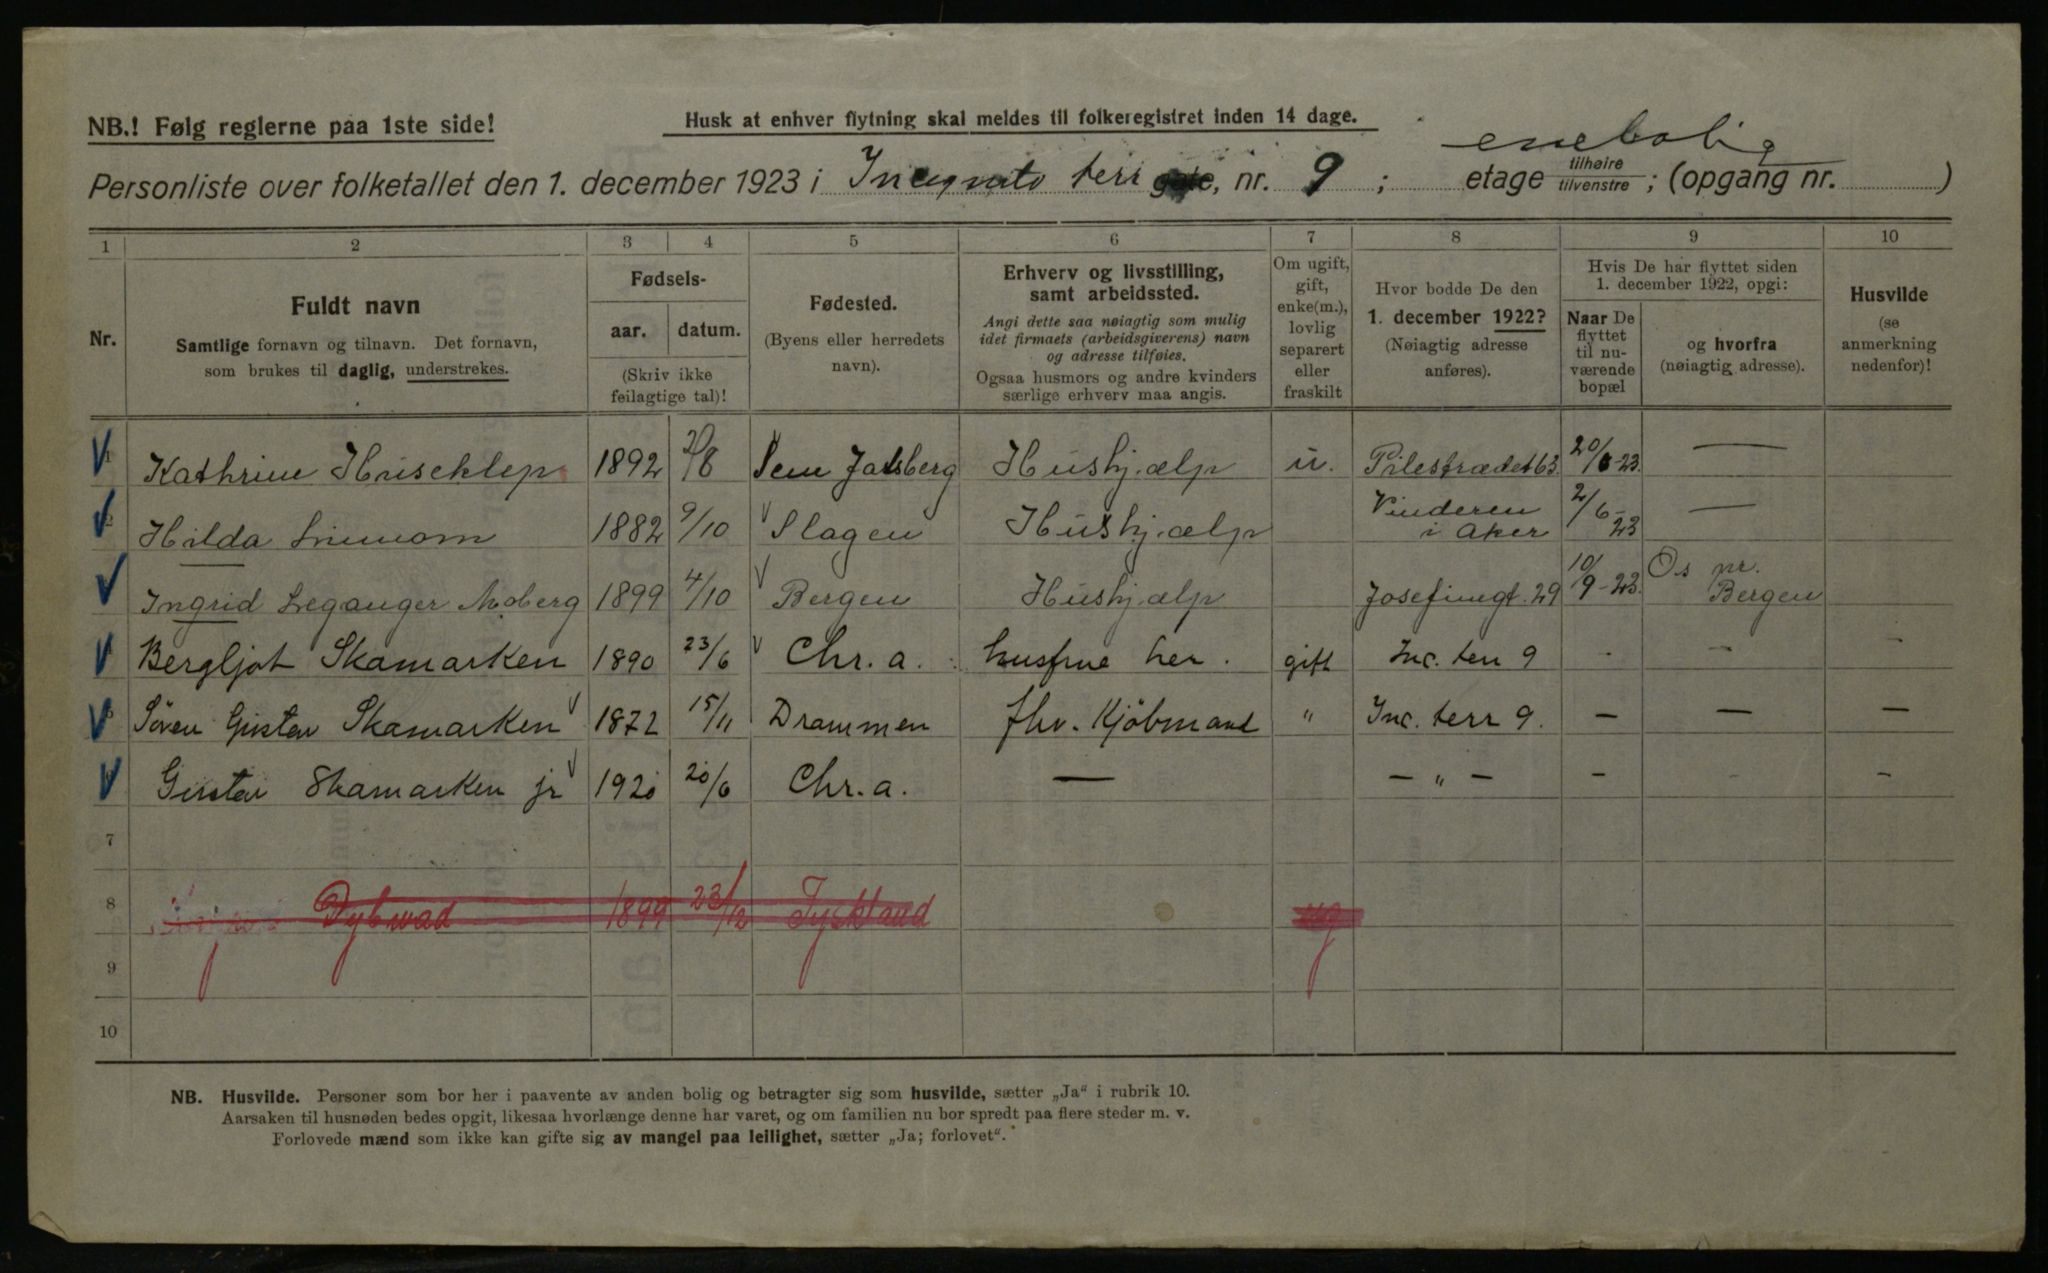 NB.! Følg reglerne paa 1ste side!
Husk at enhver flytning skal meldes til folkeregistret inden 14 dage.
enebolig
Personliste over folketallet den 1. december 1923 i Incognito terr gate, nr. 9 ; etage tilhøire tilvenstre ; (opgang nr. )
1 2 3 4 5 6 7 8 9 10
Nr.
Fuldt navn
Samtlige fornavn og tilnavn. Det fornavn,
som brukes til daglig, understrekes.
Fødsels-
aar. datum.
(Skriv ikke
feilagtige tal)!
Fødested.
(Byens eller herredets
navn).
Erhverv og livsstilling,
samt arbeidssted.
Angi dette saa nøiagtig som mulig
idet firmaets (arbeidsgiverens) navn
og adresse tilføies.
Ogsaa husmors og andre kvinders
særlige erhverv maa angis.
Om ugift,
gift,
enke(m.),
lovlig
separert
eller
fraskilt
Hvor bodde De den
1. december 1922?
(Nøiagtig adresse
anføres).
Hvis De har flyttet siden
1. december 1922, opgi:
Naar De
flyttet
til nu-
værende
bopæl
og hvorfra
(nøiagtig adresse).
Husvilde
(se
anmerkning
nedenfor)!
1 Kathrine Huseklep 1892 /8 Sem Jarlsberg Hushjælp u. Pilestrædet 63 20/6-23. —
2 Hilda 1882 9/10 Slagen Hushjælp Vinderen i Aker 2/6-23 —
Ingrid Leganger Moberg 1899 4/10 Bergen Hushjælp Josefinegt. 29 10/9-23. Os pr. Bergen
Bergljot Skamarken 1890 23/6 Chr.a. husfrue her. gift Inc. terr 9 - - -
5 Søren Gustav Skamarken 1872 15/11 Drammen fhv. Kjöbmand " Inc. terr 9. — — —
Gustav Skamarken jr 1920 20/6 Chr.a. — — " — - - -
7
8 Dybwad 1899 23/12 Tyskland ug
9
10
NB. Husvilde. Personer som bor her i paavente av anden bolig og betragter sig som husvilde, sætter „Ja“ i rubrik 10.
Aarsaken til husnøden bedes opgit, likesaa hvorlænge denne har varet, og om familien nu bor spredt paa flere steder m. v.
Forlovede mænd som ikke kan gifte sig av mangel paa leilighet, sætter „Ja; forlovet“.